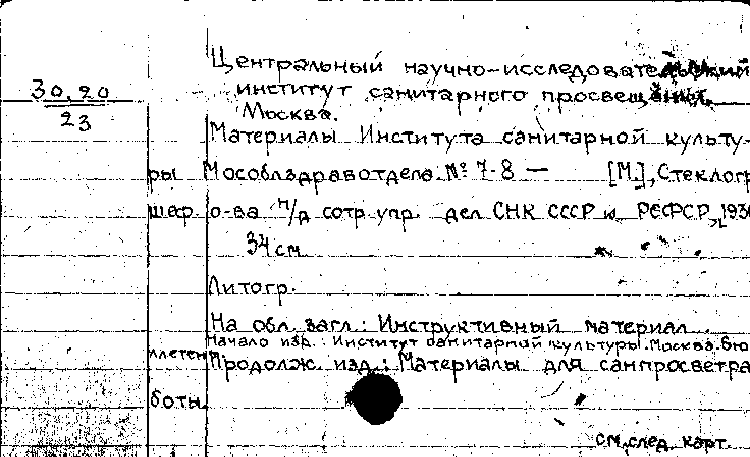 Центральный научно-исследовательский
30.20
институт санитарного просвещения.
23
Москва.
Материалы Института санитарной культу-
ры Мособлздравотдела. № 7-8 — [М.], Стеклогр
шеф. о-ва н/д сотр. упр. дел СНК СССР и РСФСР,
34 см
Литогр.
На обл. загл.: Инструктивный материал
Начало изд.: Институт санитарной культуры. Москва. Бю
ллетень
Продолж. изд.: Материалы для санпросветра
боты.
см. след. карт.